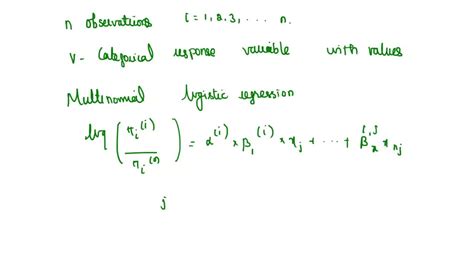 n observations i = 1, 2, 3, ... n.
Y - Categorical response variable with values
Multinomial logistic regression
log (π_i^(i) / π_i^(0)) = α^(i) × β_1^(i) × x_j + ... + β_x^(i,j) x x_nj
j